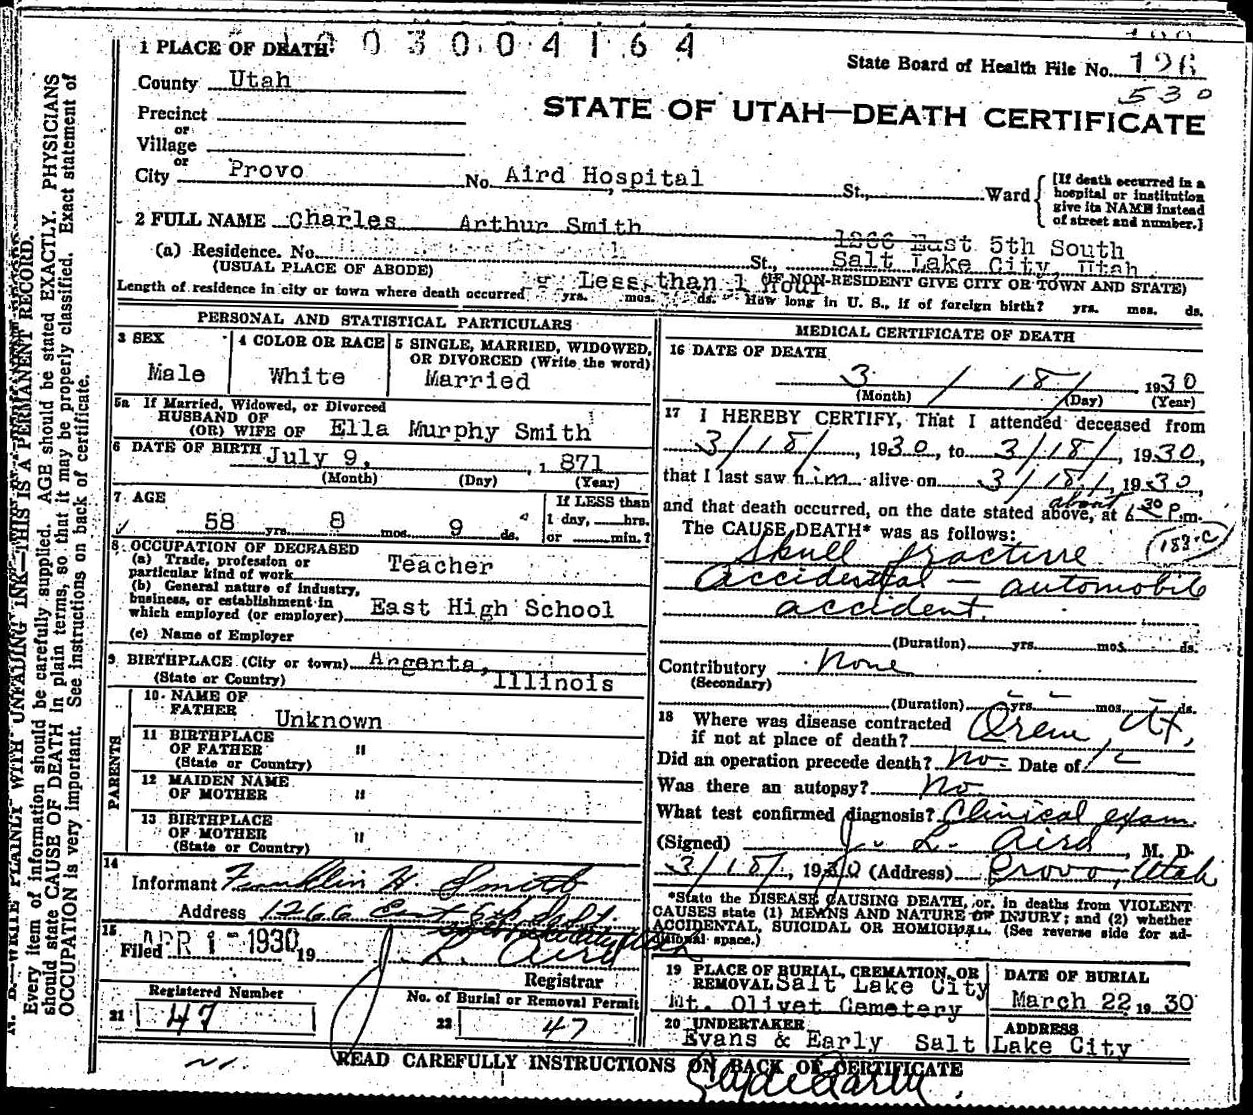 1 0 0 3 0 0 4 1 6 4
1 PLACE OF DEATH
State Board of Health File No. 126
530
County Utah
STATE OF UTAH—DEATH CERTIFICATE
Precinct
or
Village
or
City Provo No. Aird Hospital St., Ward
[If death occurred in a hospital or institution give its NAME instead of street and number.]
2 FULL NAME Charles Arthur Smith
1266 East 5th South
(a) Residence. No. St., Salt Lake City, Utah
(USUAL PLACE OF ABODE) (IF NON-RESIDENT GIVE CITY OR TOWN AND STATE)
Length of residence in city or town where death occurred yrs. mos. ds. Less than 1 hour How long in U. S., if of foreign birth? yrs. mos. ds.
PERSONAL AND STATISTICAL PARTICULARS
3 SEX
Male
4 COLOR OR RACE
White
5 SINGLE, MARRIED, WIDOWED, OR DIVORCED (Write the word)
Married
5a If Married, Widowed, or Divorced
HUSBAND OF
(OR) WIFE OF Ella Murphy Smith
6 DATE OF BIRTH July 9, 1871
(Month) (Day) (Year)
7 AGE
58 yrs. 8 mos. 9 ds.
If LESS than
1 day, hrs.
or min.?
8 OCCUPATION OF DECEASED
(a) Trade, profession or particular kind of work Teacher
(b) General nature of industry, business, or establishment in which employed (or employer) East High School
(c) Name of Employer
9 BIRTHPLACE (City or town) Argenta,
(State or Country) Illinois
PARENTS
10 NAME OF FATHER Unknown
11 BIRTHPLACE OF FATHER "
(State or Country)
12 MAIDEN NAME OF MOTHER "
13 BIRTHPLACE OF MOTHER "
(State or Country)
14
Informant Franklin H. Smith
Address 1266 East 5th
15
Filed APR 1 - 1930 19 J. L. Aird
Registrar
Registered Number
21 47
No. of Burial or Removal Permit
22 47
MEDICAL CERTIFICATE OF DEATH
16 DATE OF DEATH
3 / 18 / 1930
(Month) (Day) (Year)
17 I HEREBY CERTIFY, That I attended deceased from
3/18/, 1930, to 3/18/, 1930,
that I last saw him alive on 3/18/, 1930,
and that death occurred, on the date stated above, at about 6 30 P.m.
The CAUSE DEATH* was as follows:
Skull fracture
Accidental — automobile
accident.
(Duration) yrs. mos. ds.
Contributory None
(Secondary)
(Duration) yrs. mos. ds.
18 Where was disease contracted
if not at place of death? Orem, Ut,
Did an operation precede death? No - Date of
Was there an autopsy? No
What test confirmed diagnosis? Clinical exam.
(Signed) J. L. Aird, M. D.
3/18/, 1930 (Address) Provo, Utah
*State the DISEASE CAUSING DEATH, or, in deaths from VIOLENT
CAUSES state (1) MEANS AND NATURE OF INJURY; and (2) whether
ACCIDENTAL, SUICIDAL OR HOMICIDAL. (See reverse side for ad-
ditional space.)
19 PLACE OF BURIAL, CREMATION, OR REMOVAL Salt Lake City
Mt. Olivet Cemetery
DATE OF BURIAL
March 22 1930
20 UNDERTAKER
Evans & Early
ADDRESS
Salt Lake City
READ CAREFULLY INSTRUCTIONS ON BACK OF CERTIFICATE
Clyde Early
N. B.—WRITE PLAINLY WITH UNFADING INK—THIS IS A PERMANENT RECORD.
Every item of information should be carefully supplied. AGE should be stated EXACTLY. PHYSICIANS
should state CAUSE OF DEATH in plain terms, so that it may be properly classified. Exact statement of
OCCUPATION is very important. See instructions on back of certificate.